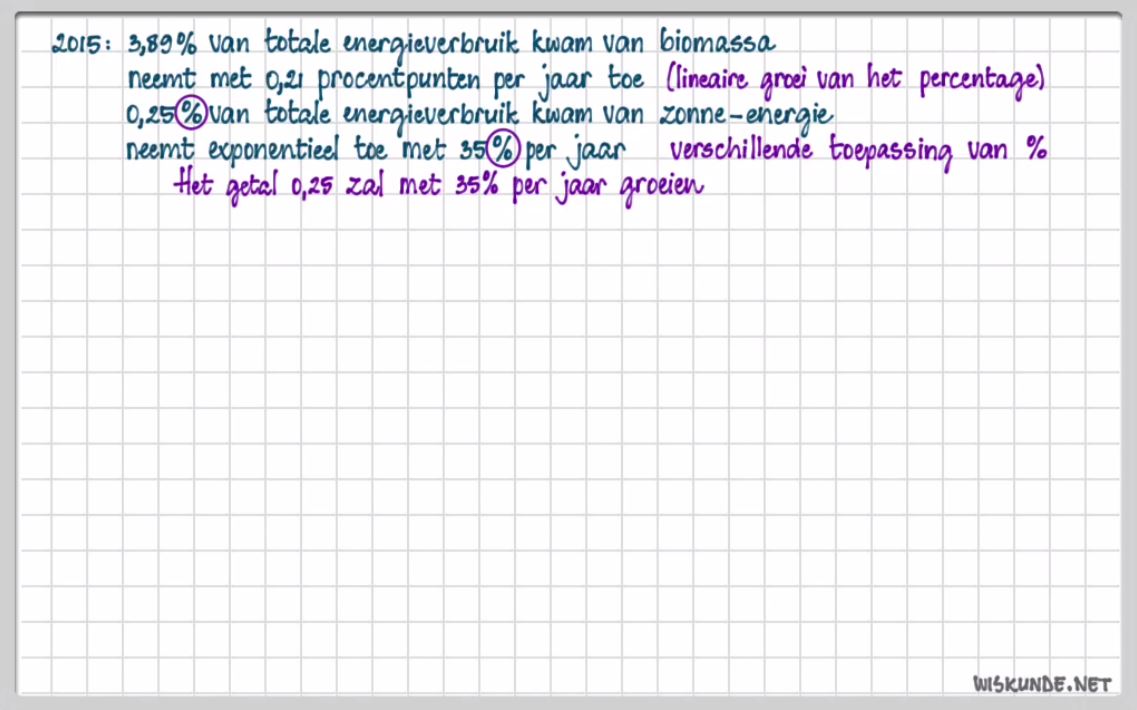 2015: 3,89% van totale energieverbruik kwam van biomassa
neemt met 0,21 procentpunten per jaar toe (lineaire groei van het percentage)
0,25% van totale energieverbruik kwam van zonne-energie
neemt exponentieel toe met 35% per jaar verschillende toepassing van %
Het getal 0,25 zal met 35% per jaar groeien
WISKUNDE.NET